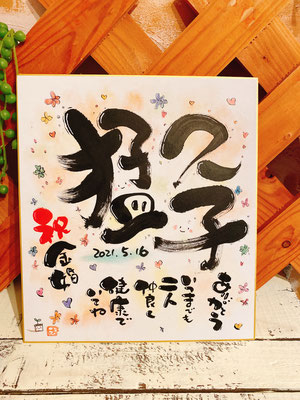 久子
猛
2021.5.16
祝
金婚
ありがとう
いつまでも
二人
仲良く
健康で
いてね